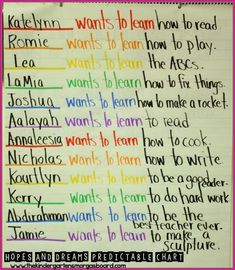 Katelynn wants to learn how to read
Romie wants to learn how to play.
Lea wants to learn the ABCs.
LaMia wants to learn how to fix things.
Joshua wants to learn how to make a rocket.
Aalayah wants to learn to read
Annaleesia wants to learn how to cook.
Nicholas wants to learn how to write
Kourtlyn wants to learn to be a good reader.
Kerry wants to learn to do hard work
Abdirahman wants to learn to be the
best teacher ever.
Jamie wants to learn to make a
sculpture.
HOPES AND DREAMS PREDICTABLE CHART
www.thekindergartensmorgasboard.com